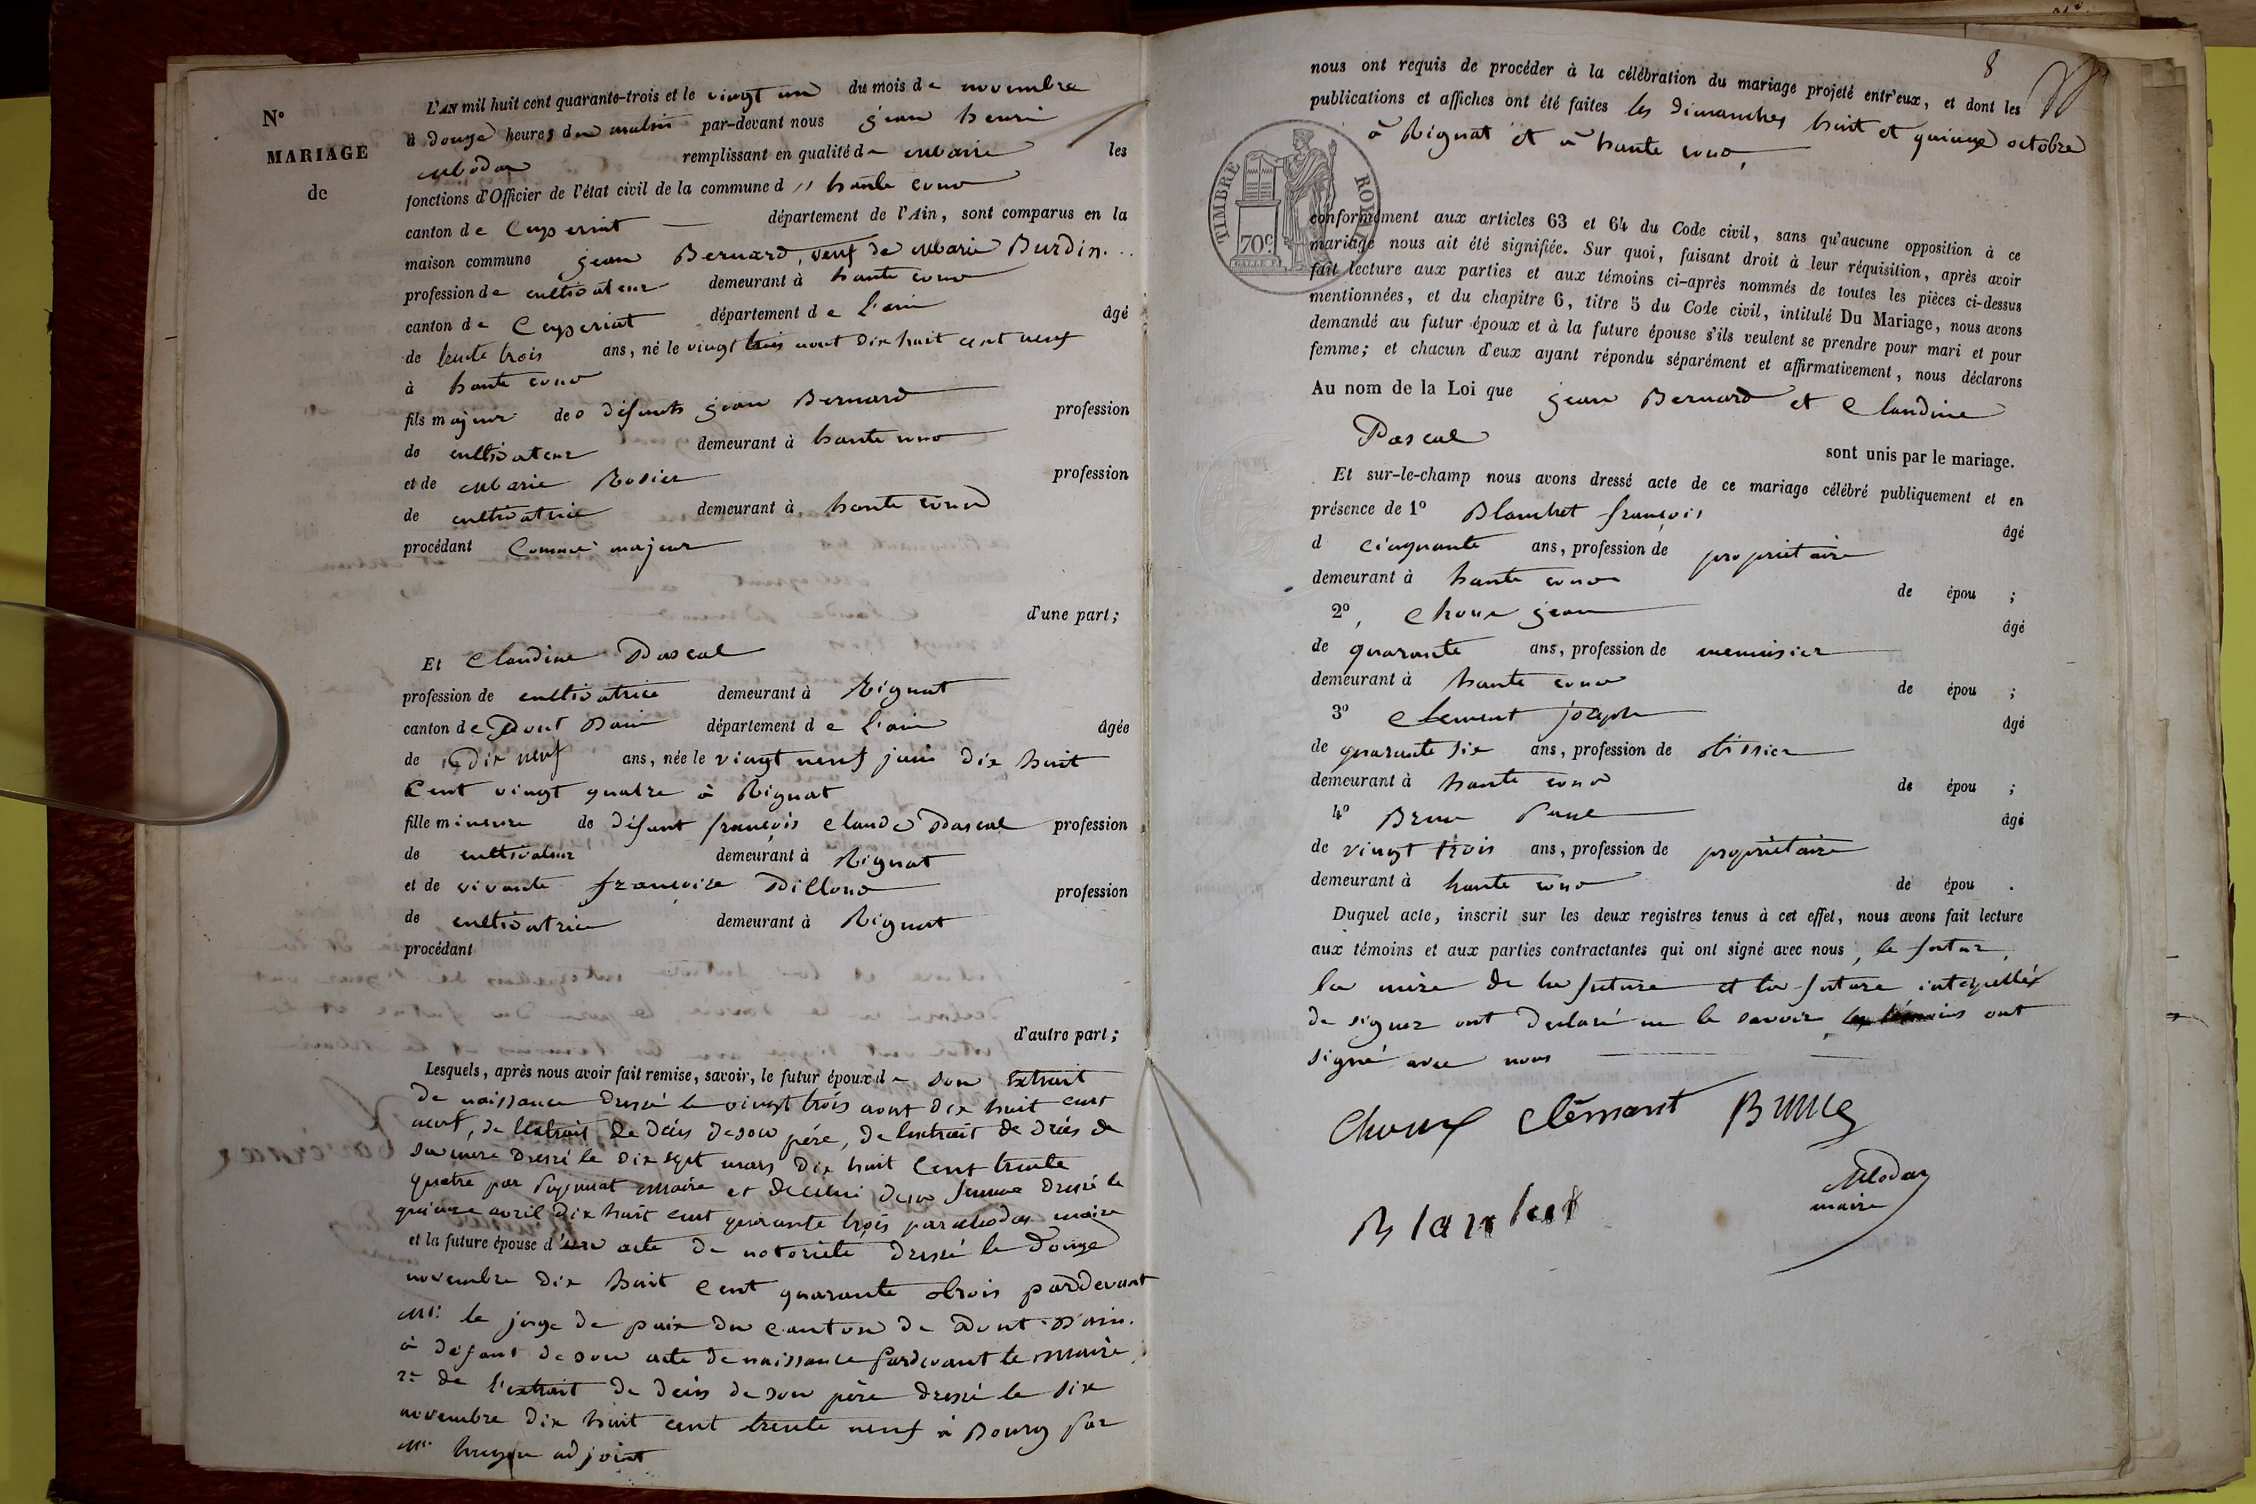 N°
MARIAGE
de
L'AN mil huit cent quarante-trois et le vingt un du mois de novembre
à douze heures du matin par-devant nous jean henri
Modas remplissant en qualité de Maire les
fonctions d'Officier de l'état civil de la commune d'' haute cour
canton de Ceyseriat département de l'Ain, sont comparus en la
maison commune jean Bernard, veuf de Marie Burdin...
profession de cultivateur demeurant à haute cour
canton de Ceyseriat département de l'ain âgé
de trente trois ans, né le vingt trois aout dix huit cent neuf
à haute cour
fils majeur des défunts jean Bernard profession
de cultivateur demeurant à haute cour
et de Marie Rosier profession
de cultivatrice demeurant à haute cour
procédant comme majeur
d'une part;
Et Claudine Pascal
profession de cultivatrice demeurant à Rignat
canton de Pont Dain département de l'ain âgée
de Dix neuf ans, née le vingt neuf juin dix huit
Cent vingt quatre à Rignat
fille mineure de défunt françois claude Pascal profession
de cultivateur demeurant à Rignat
et de vivante françoise Dillond profession
de cultivatrice demeurant à Rignat
procédant
d'autre part;
Lesquels, après nous avoir fait remise, savoir, le futur époux de son Extrait
de naissance dressé le vingt trois aout dix huit cent
neuf, de l'extrait de décès de son père, de l'extrait de décès de
sa mere dressé le dix sept mars dix huit Cent trente
quatre par maire et de celui de sa femme dressé le
quinze avril dix huit cent quarante trois par Modas maire
et la future épouse d'un acte de notoriété dressé le douze
novembre dix huit Cent quarante trois pardevant
Mr. le juge de paix du canton de Pont-D'ain.
à défaut de son acte de naissance pardevant le maire,
2° de l'extrait de décès de son père dressé le six
novembre dix huit cent trente neuf à Bourg par
Mr. adjoint
8
nous ont requis de procéder à la célébration du mariage projeté entr'eux, et dont les
publications et affiches ont été faites les dimanches huit et quinze octobre
à Rignat et à haute cour,
TIMBRE ROYAL
70c
conformément aux articles 63 et 64 du Code civil, sans qu'aucune opposition à ce
mariage nous ait été signifiée. Sur quoi, faisant droit à leur réquisition, après avoir
fait lecture aux parties et aux témoins ci-après nommés de toutes les pièces ci-dessus
mentionnées, et du chapitre 6, titre 5 du Code civil, intitulé Du Mariage, nous avons
demandé au futur époux et à la future épouse s'ils veulent se prendre pour mari et pour
femme; et chacun d'eux ayant répondu séparément et affirmativement, nous déclarons
Au nom de la Loi que jean Bernard et Claudine
Pascal
sont unis par le mariage.
Et sur-le-champ nous avons dressé acte de ce mariage célébré publiquement et en
présence de 1° Blanchet françois âgé
d cinquante ans, profession de propriétaire
demeurant à haute cour de épou ;
2°, Choux jean âgé
de quarante ans, profession de menuisier
demeurant à haute cour de épou ;
3° Clement joseph âgé
de quarante six ans, profession de tissier
demeurant à haute cour de épou ;
4° Brun Paul âgé
de vingt trois ans, profession de propriétaire
demeurant à haute cour de épou .
Duquel acte, inscrit sur les deux registres tenus à cet effet, nous avons fait lecture
aux témoins et aux parties contractantes qui ont signé avec nous, le futur,
la mère de la future et la future interpellés
de signer ont declaré ne le savoir les témoins ont
signé avec nous
Choux Clémant Brun
Modas
maire
Blanchet